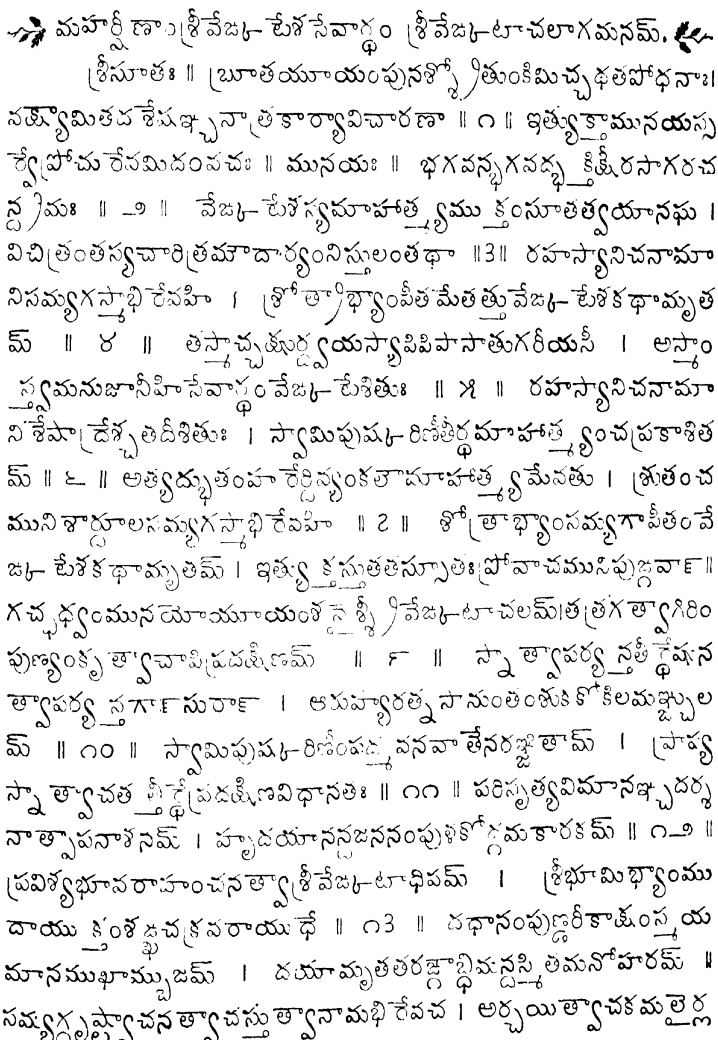 మహర్షీణాం శ్రీవేఙ్కటేశసేవార్థం శ్రీవేఙ్కటాచలాగమనమ్.
శ్రీసూతః ॥ బ్రూతయూయంపునశ్శ్రోతుంకిమిచ్ఛథతపోధనాః।
వక్ష్యామితదశేషఞ్చనాత్రకార్యావిచారణా ॥ ౧ ॥ ఇత్యుక్తామునయస్స
ర్వేప్రోచురేవమిదంవచః ॥ మునయః ॥ భగవన్భగవద్భక్తిక్షీరసాగరచ
న్ద్రమః ॥ ౨ ॥ వేఙ్కటేశస్యమాహాత్మ్యముక్తంసూతత్వయానఘ ।
విచిత్రంతస్యచారిత్రమౌదార్యంనిస్తులంతథా ॥౩॥ రహస్యానిచనామా
నిసమ్యగస్మాభిరేవహి । శ్రోత్రాభ్యాంపీతమేతత్తువేఙ్కటేశకథామృత
మ్ ॥ ౪ ॥ తస్మాచ్చక్షుర్ద్వయస్యాపిపిపాసాతుగరీయసీ । అస్మాం
స్త్వమనుజానీహిసేవార్థంవేఙ్కటేశితుః ॥ ౫ ॥ రహస్యానిచనామా
నిశేషాద్రేశ్చతదీశితుః । స్వామిపుష్కరిణీతీర్థమాహాత్మ్యంచప్రకాశిత
మ్ ॥ ౬ ॥ అత్యద్భుతంహరేర్దివ్యంకలౌమాహాత్మ్యమేవతు । శ్రుతంచ
మునిశార్దూలసమ్యగస్మాభిరేవహి ॥ ౭ ॥ శ్రోత్రాభ్యాంసమ్యగాపీతంవే
ఙ్కటేశకథామృతమ్ । ఇత్యుక్తస్తుతతస్సూతఃప్రోవాచమునిపుఙ్గవాన్॥
గచ్ఛధ్వంమునయోయూయంశనైశ్శ్రీవేఙ్కటాచలమ్।తత్రగత్వాగిరిం
పుణ్యంకృత్వాచాపిప్రదక్షిణమ్ ॥ ౯ ॥ స్నాత్వాపర్యన్తతీర్థేషున
త్వాపర్యన్తగాన్సురాన్ । ఆరుహ్యరత్నసానుంతంశుకకోకిలమఞ్జుల
మ్ ॥ ౧౦ ॥ స్వామిపుష్కరిణీంపద్మవనవాతేనరఞ్జితామ్ । ప్రాప్య
స్నాత్వాచతత్తీర్థేప్రదక్షిణవిధానతః ॥ ౧౧ ॥ పరిసృత్యవిమానఞ్చదర్శ
నాత్పాపనాశనమ్ । హృదయానన్దజననంపుళకోద్గమకారకమ్ ॥ ౧౨ ॥
ప్రవిశ్యభూవరాహంచనత్వాశ్రీవేఙ్కటాధిపమ్ । శ్రీభూమిభ్యాంము
దాయుక్తంశఙ్ఖచక్రవరాయుధే ॥ ౧౩ ॥ దధానంపుణ్డరీకాక్షంస్మయ
మానముఖామ్బుజమ్ । దయామృతతరఙ్గాబ్ధిమన్దస్మితమనోహరమ్ ॥
సమ్యగ్దృష్ట్వాచనత్వాచస్తుత్వానామభిరేవచ । అర్చయిత్వాచకమలైర్ల